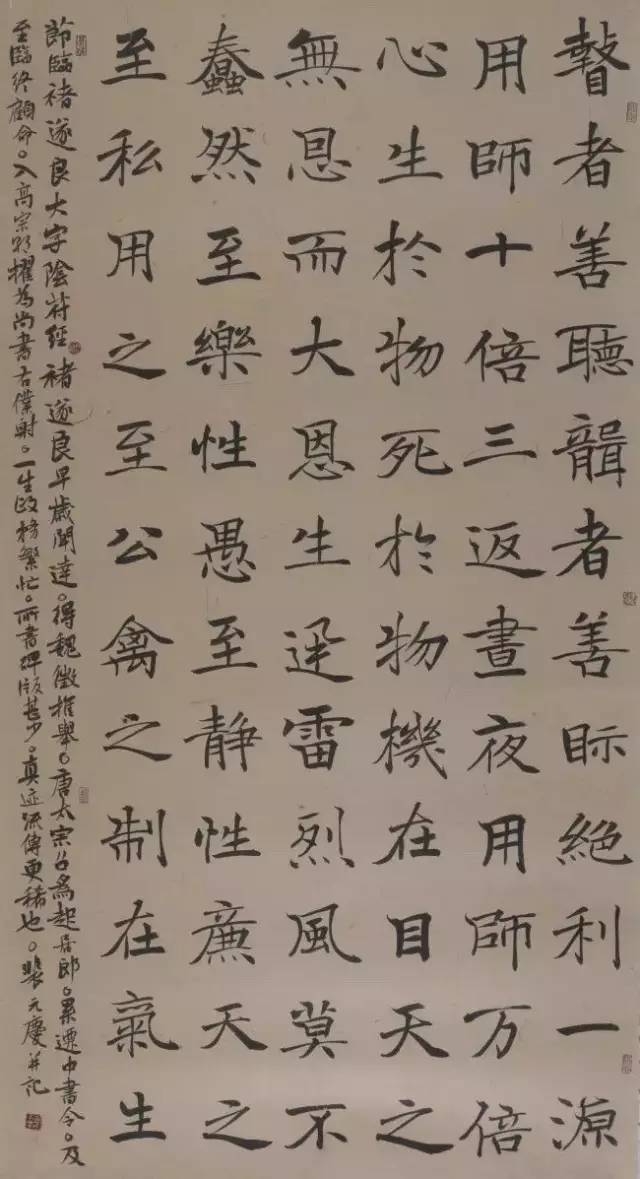 瞽者善聽聾者善眎絕利一源
用師十倍三返晝夜用師万倍
心生於物死於物機在目天之
無恩而大恩生迅雷烈風莫不
蠢然至樂性愚至靜性廉天之
至私用之至公禽之制在氣生
節臨褚遂良大字陰符經褚遂良早歲聞達。得魏徵推舉。唐太宗召為起居郎。累遷中書令。及
至臨終顧命。入高宗朝擢為尚書右僕射。一生政務繁忙。所書碑版甚少。真迹流傳更稀也。裴元慶并記